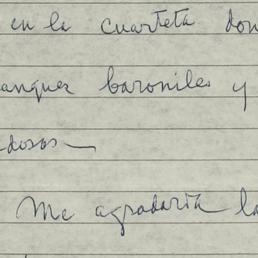 en la cuarteta don
anques baroniles y
dosos—
Me agradaría la